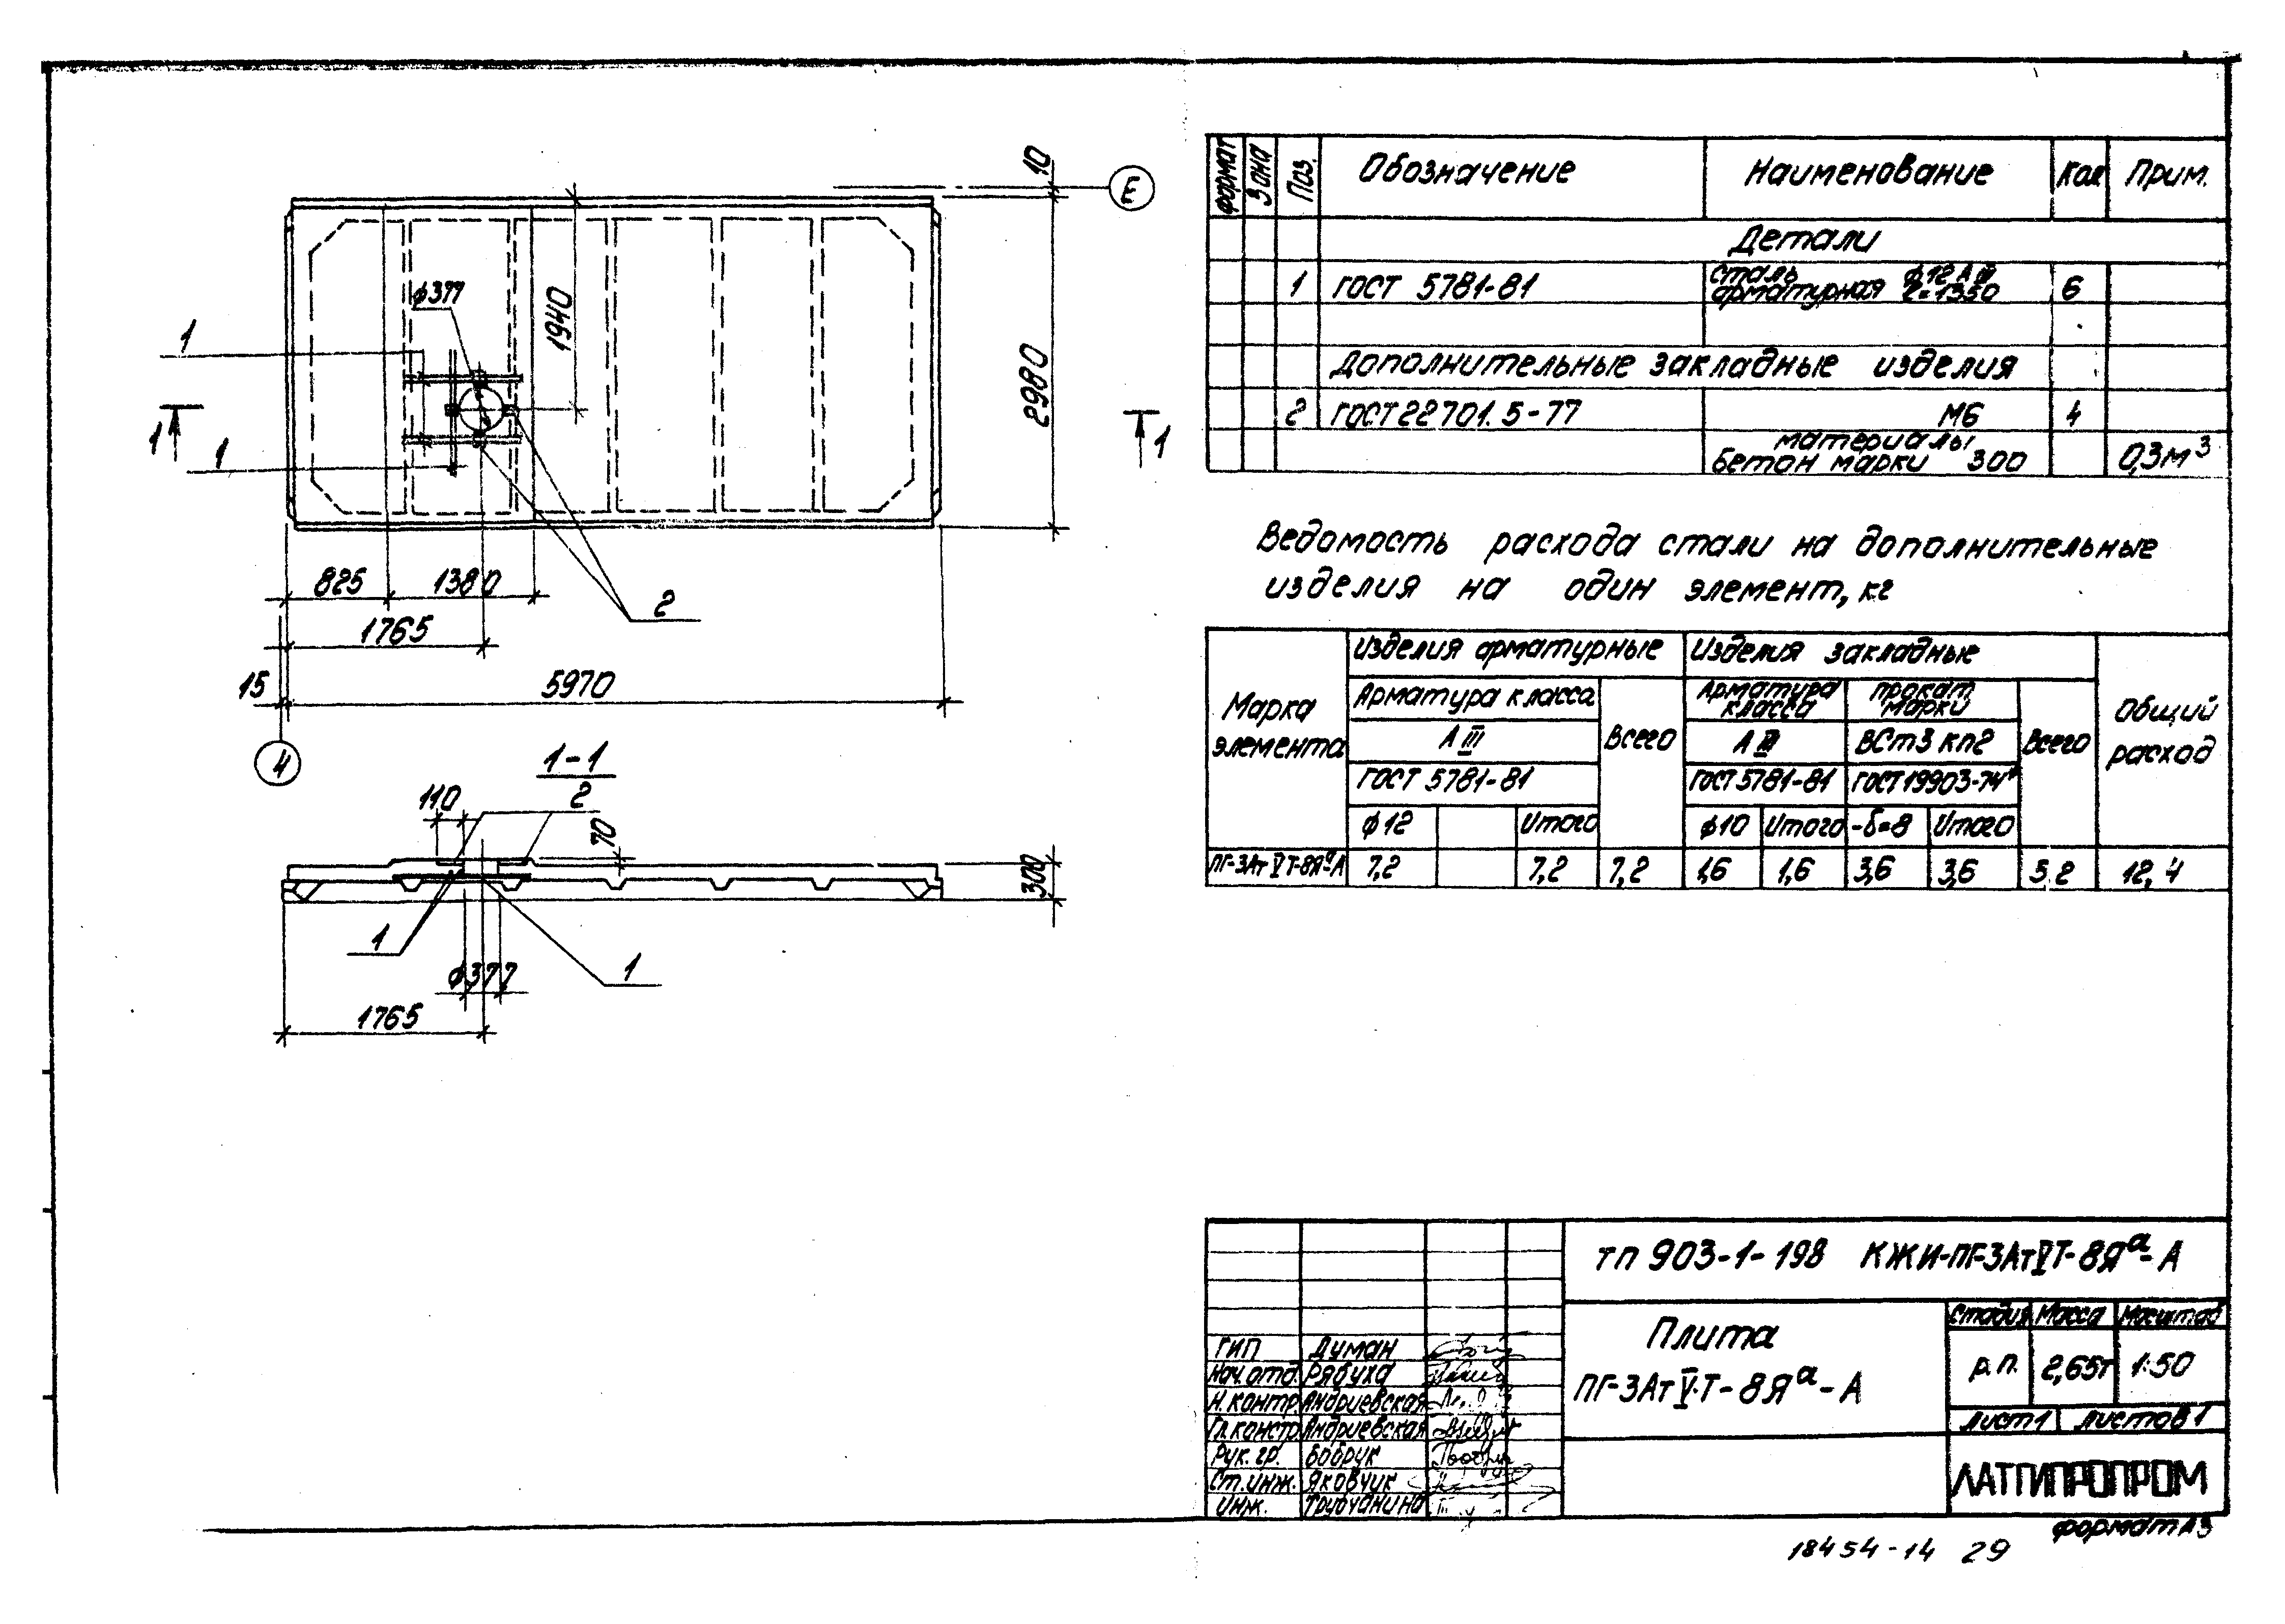 10
Е
ф377
1940
2980
1
1
1
1
825
1380
2
1765
15
5970
4
1-1
110
2
70
300
1
1
ф377
1765
формат Зона Поз. Обозначение Наименование Кол Прим.
Детали
1 ГОСТ 5781-81 Сталь арматурная ф12 А III ℓ=1350 6
Дополнительные закладные изделия
2 ГОСТ 22701.5-77 М6 4
материалы
бетон марки 300 0,3м³
Ведомость расхода стали на дополнительные
изделия на один элемент, кг
Марка элемента
Изделия арматурные Изделия закладные Общий расход
Арматура класса Всего Арматура класса прокат марки Всего
А III А III ВСт3 кп2
ГОСТ 5781-81 ГОСТ 5781-81 ГОСТ 19903-74*
ф12 Итого ф10 Итого -δ=8 Итого
ПГ-3Ат V Т-8Яа-А 7,2 7,2 7,2 1,6 1,6 3,6 3,6 5.2 12,4
тп 903-1-198 КЖИ-ПГ-3АтVТ-8Яа-А
Плита
ПГ-3АтV.Т-8Яа-А
Стадия Масса Масштаб
р.п. 2,65т 1:50
Лист 1 Листов 1
ЛАТГИПРОПРОМ
ГИП Думан
Нач.отд. Рябуха
Н.контр. Андриевская
Гл.констр. Андриевская
Рук.гр. Бобрук
Ст.инж. Яковчук
Инж. Трубчанина
формат А3
18454-14 29